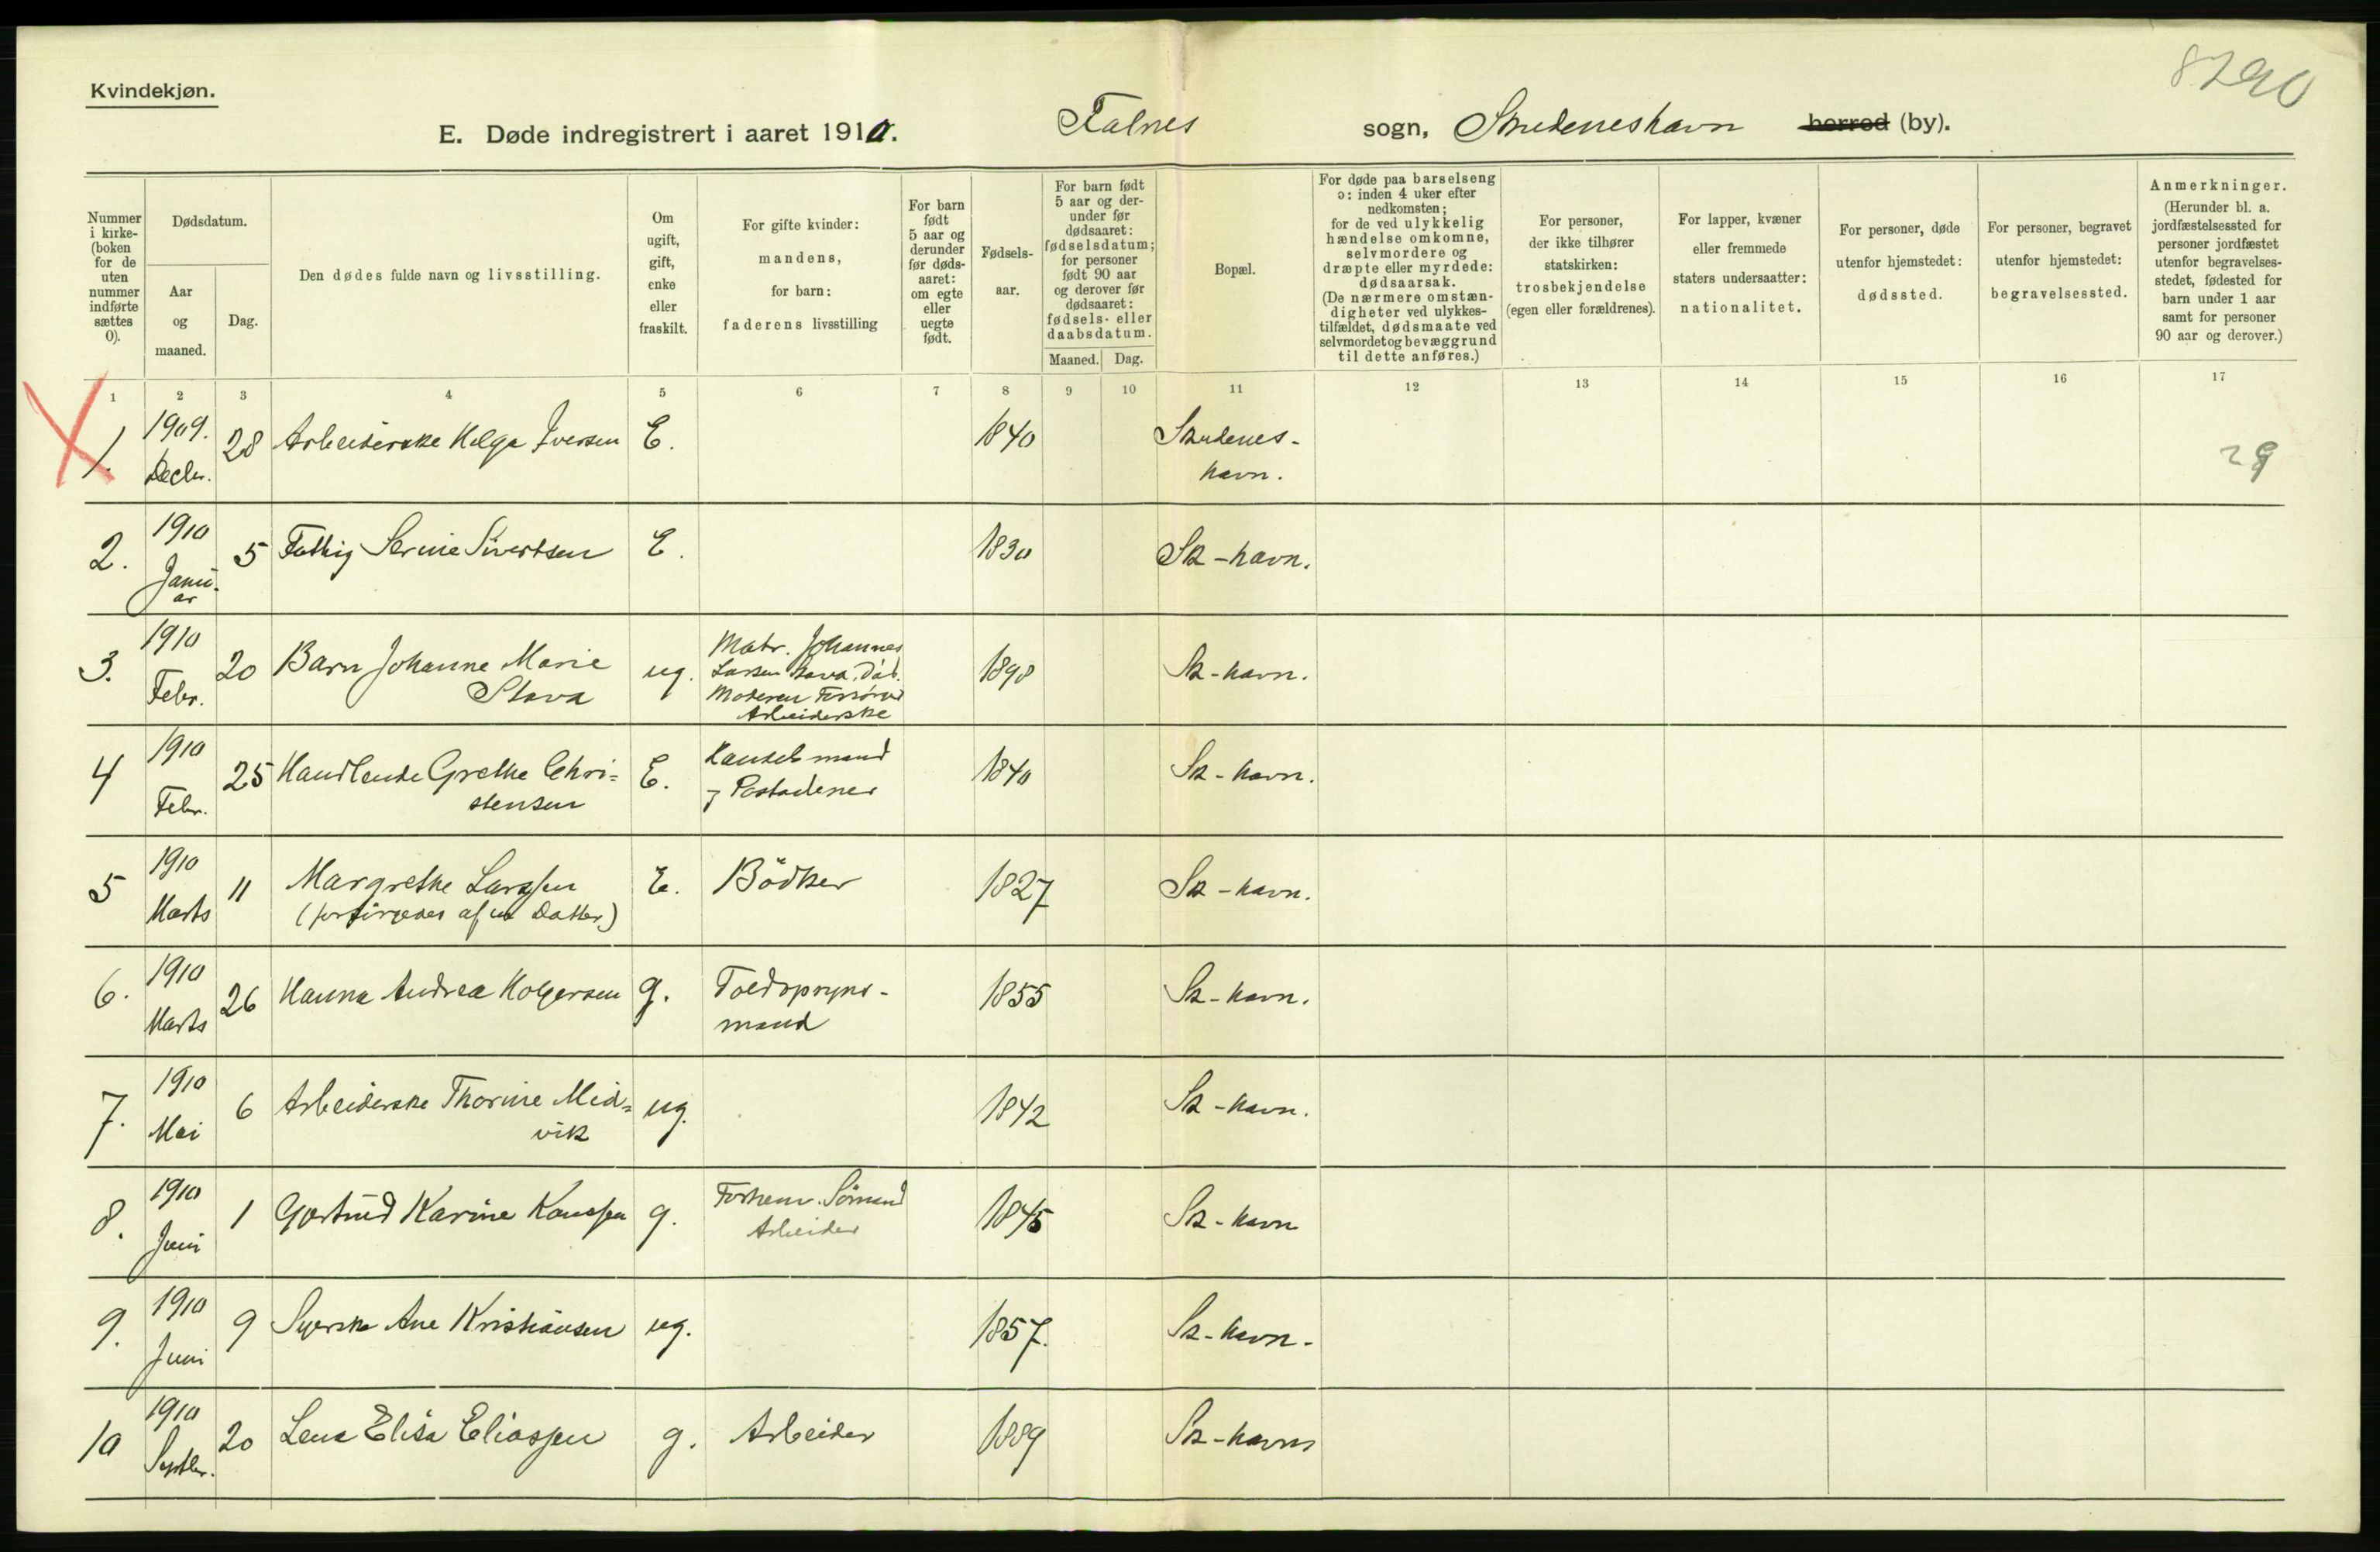 8290
Kvindekjøn.
E. Døde indregistrert i aaret 1910. Falnes sogn, Skudeneshavn herred (by).
Nummer i kirke-(boken for de uten nummer indførte sættes 0).
Dødsdatum.
Aar og maaned.
Dag.
Den dødes fulde navn og livsstilling.
Om ugift, gift, enke eller fraskilt.
For gifte kvinder: mandens, for barn: faderens livsstilling
For barn født 5 aar og derunder før døds-aaret: om egte eller uegte født.
Fødsels-aar.
For barn født 5 aar og der-under før dødsaaret: fødselsdatum; for personer født 90 aar og derover før dødsaaret: fødsels- eller daabsdatum.
Maaned. Dag.
Bopæl.
For døde paa barselseng ɔ: inden 4 uker efter nedkomsten; for de ved ulykkelig hændelse omkomne, selvmordere og dræpte eller myrdede: dødsaarsak. (De nærmere omstæn-digheter ved ulykkes-tilfældet, dødsmaate ved selvmordet og bevæggrund til dette anføres.)
For personer, der ikke tilhører statskirken: trosbekjendelse (egen eller forældrenes).
For lapper, kvæner eller fremmede staters undersaatter: nationalitet.
For personer, døde utenfor hjemstedet: dødssted.
For personer, begravet utenfor hjemstedet: begravelsessted.
Anmerkninger. (Herunder bl. a. jordfæstelsessted for personer jordfæstet utenfor begravelses-stedet, fødested for barn under 1 aar samt for personer 90 aar og derover.)
1 2 3 4 5 6 7 8 9 10 11 12 13 14 15 16 17
1. 1909. Decbr. 28 Arbeiderske Helga Iversen E. 1840 Skudenes-havn. 29
2. 1910 Janu-ar 5 Fattig Serine Sivertsen E. 1830 Sk-havn.
3. 1910 Febr. 20 Barn Johanne Marie Stava ug. Matr. Johannes Larsen Stava, Død. Moderen Forsørger Arbeiderske 1898 Sk-havn.
4 1910 Febr. 25 Handlende Grethe Chri=stensen E. Handelsmand 1840 Sk-havn.
5 1910 Marts 11 Margrethe Larssen (forsørgedes af en Datter) E. Bödker 1827 Sk-havn.
6. 1910 Marts 26 Hanna Andrea Holgersen g. Toldopsyns-mand 1855 Sk-havn.
7. 1910 Mai 6 Arbeiderske Thorine Mid=vik ug. 1842 Sk-havn.
8. 1910 Juni 1 Gjertrud Karine Hanssen g. Forhenv. Sömand Arbeider 1845 Sk-havn
9. 1910 Juni 9 Syerske Ane Kristiansen ug. 1857. Sk-havn.
10 1910 Septbr. 20 Lena Elisa Eliassen g. Arbeider 1889 Sk-havn